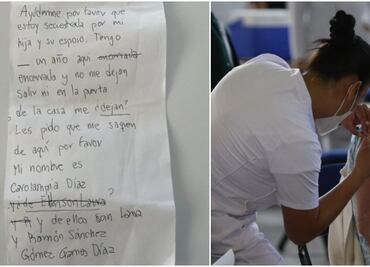 Ayúdenme por favor que
estoy secuestrada por mi
hija y su esposo. Tengo
_ un año aqui encerrada
encerrada y no me dejan
salir ni en la puerta
de la casa me ¿dejan?
Les pido que me saquen
de aquí por favor
Mi nombre es
Carolampia Díaz
y de ellos son
y Ramón Sánchez
Gómez Gómez Díaz